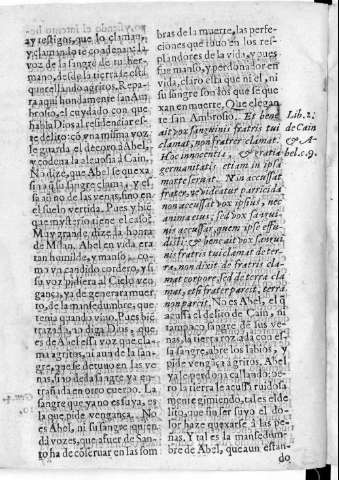 ay restigos, que lo claman,
y clamando te condenan: la
voz de la sangre de tu her-
mano, desde la tierra se està
querellando a gritos. Repa-
ra aqui hondamente san Am-
brosio, el cuydado con que
habla Dios al residenciar es-
te delito: con vna misma voz
se guarda el decoro à Abel,
y códena la aleuosia à Caín.
No dize, que Abel se quexa
sino q̃ su sangre clama, y essa
sa no de las venas, sino en
el suelo vertida. Pues y biẽ
que mysterio tiene el caso?
Muy grande, dize la honra
de Milan. Abel en vida era
tan humilde, y manso, co-
mo vn candido cordero, y si
su voz pidiera al Cielo ven-
gança, ya degenerara muer-
to, de la mansedumbre, que
tenia quando viuo. Pues biẽ
trazado, no diga Dios, que
es de Abel essa voz que cla-
ma a gritos, ni aun de la san-
gre, que se detuuo en las ve-
nas, sino de la sangre ya en-
trañada en otro cuerpo. La
sangre que ya no es suya, es
la que pide vengança. No
es Abel, ni su sangre quien
dà vozes, que a fuer de San-
to ha de cõseruar en las som
bras de la muerte, las perfe-
ciones que tuuo en los res-
plandores de la vida, y pues
fue manso, y perdonador en
vida, claro està que ni el, ni
su sangre son los que se que
xan en muerte. Que elegan
te san Ambrosio. Et bene
ait vox sanguinis fratris tui
clamat, non frater clamat.
Hoc innocentia, & gratia
germanitatis etiam in ipsa
morte seruat. Non accusat
frater, ne videatur parricida
non accusat vox ipsius, nec
anima eius, sed vox sangui-
nis accusat, quem ipse effu-
disti: & bene ait vox sangui
nis fratris tui clamat de ter-
ra, non dixit de fratris cla-
mat corpore, sed de terra cla
mat, etsi frater parcit, terra
non parcit. No es Abel, el q̃
acusa el delito de Caín, ni
tampoco sangre de sus ve-
nas, la tierra rozada con es-
sa sangre, abre los labios, y
pide vengança a gritos. Abel
ya le perdona callando; pe-
ro la tierra le acusa ruidosa
mente gimiendo, tales el de
lito, que sin ser suyo el do-
lor haze quexarse à las pe-
ñas. Y tal es la mansedum-
bre de Abel, que aun estan-
do
Lib. 2.
de Caín
& A-
bel. c. 9.